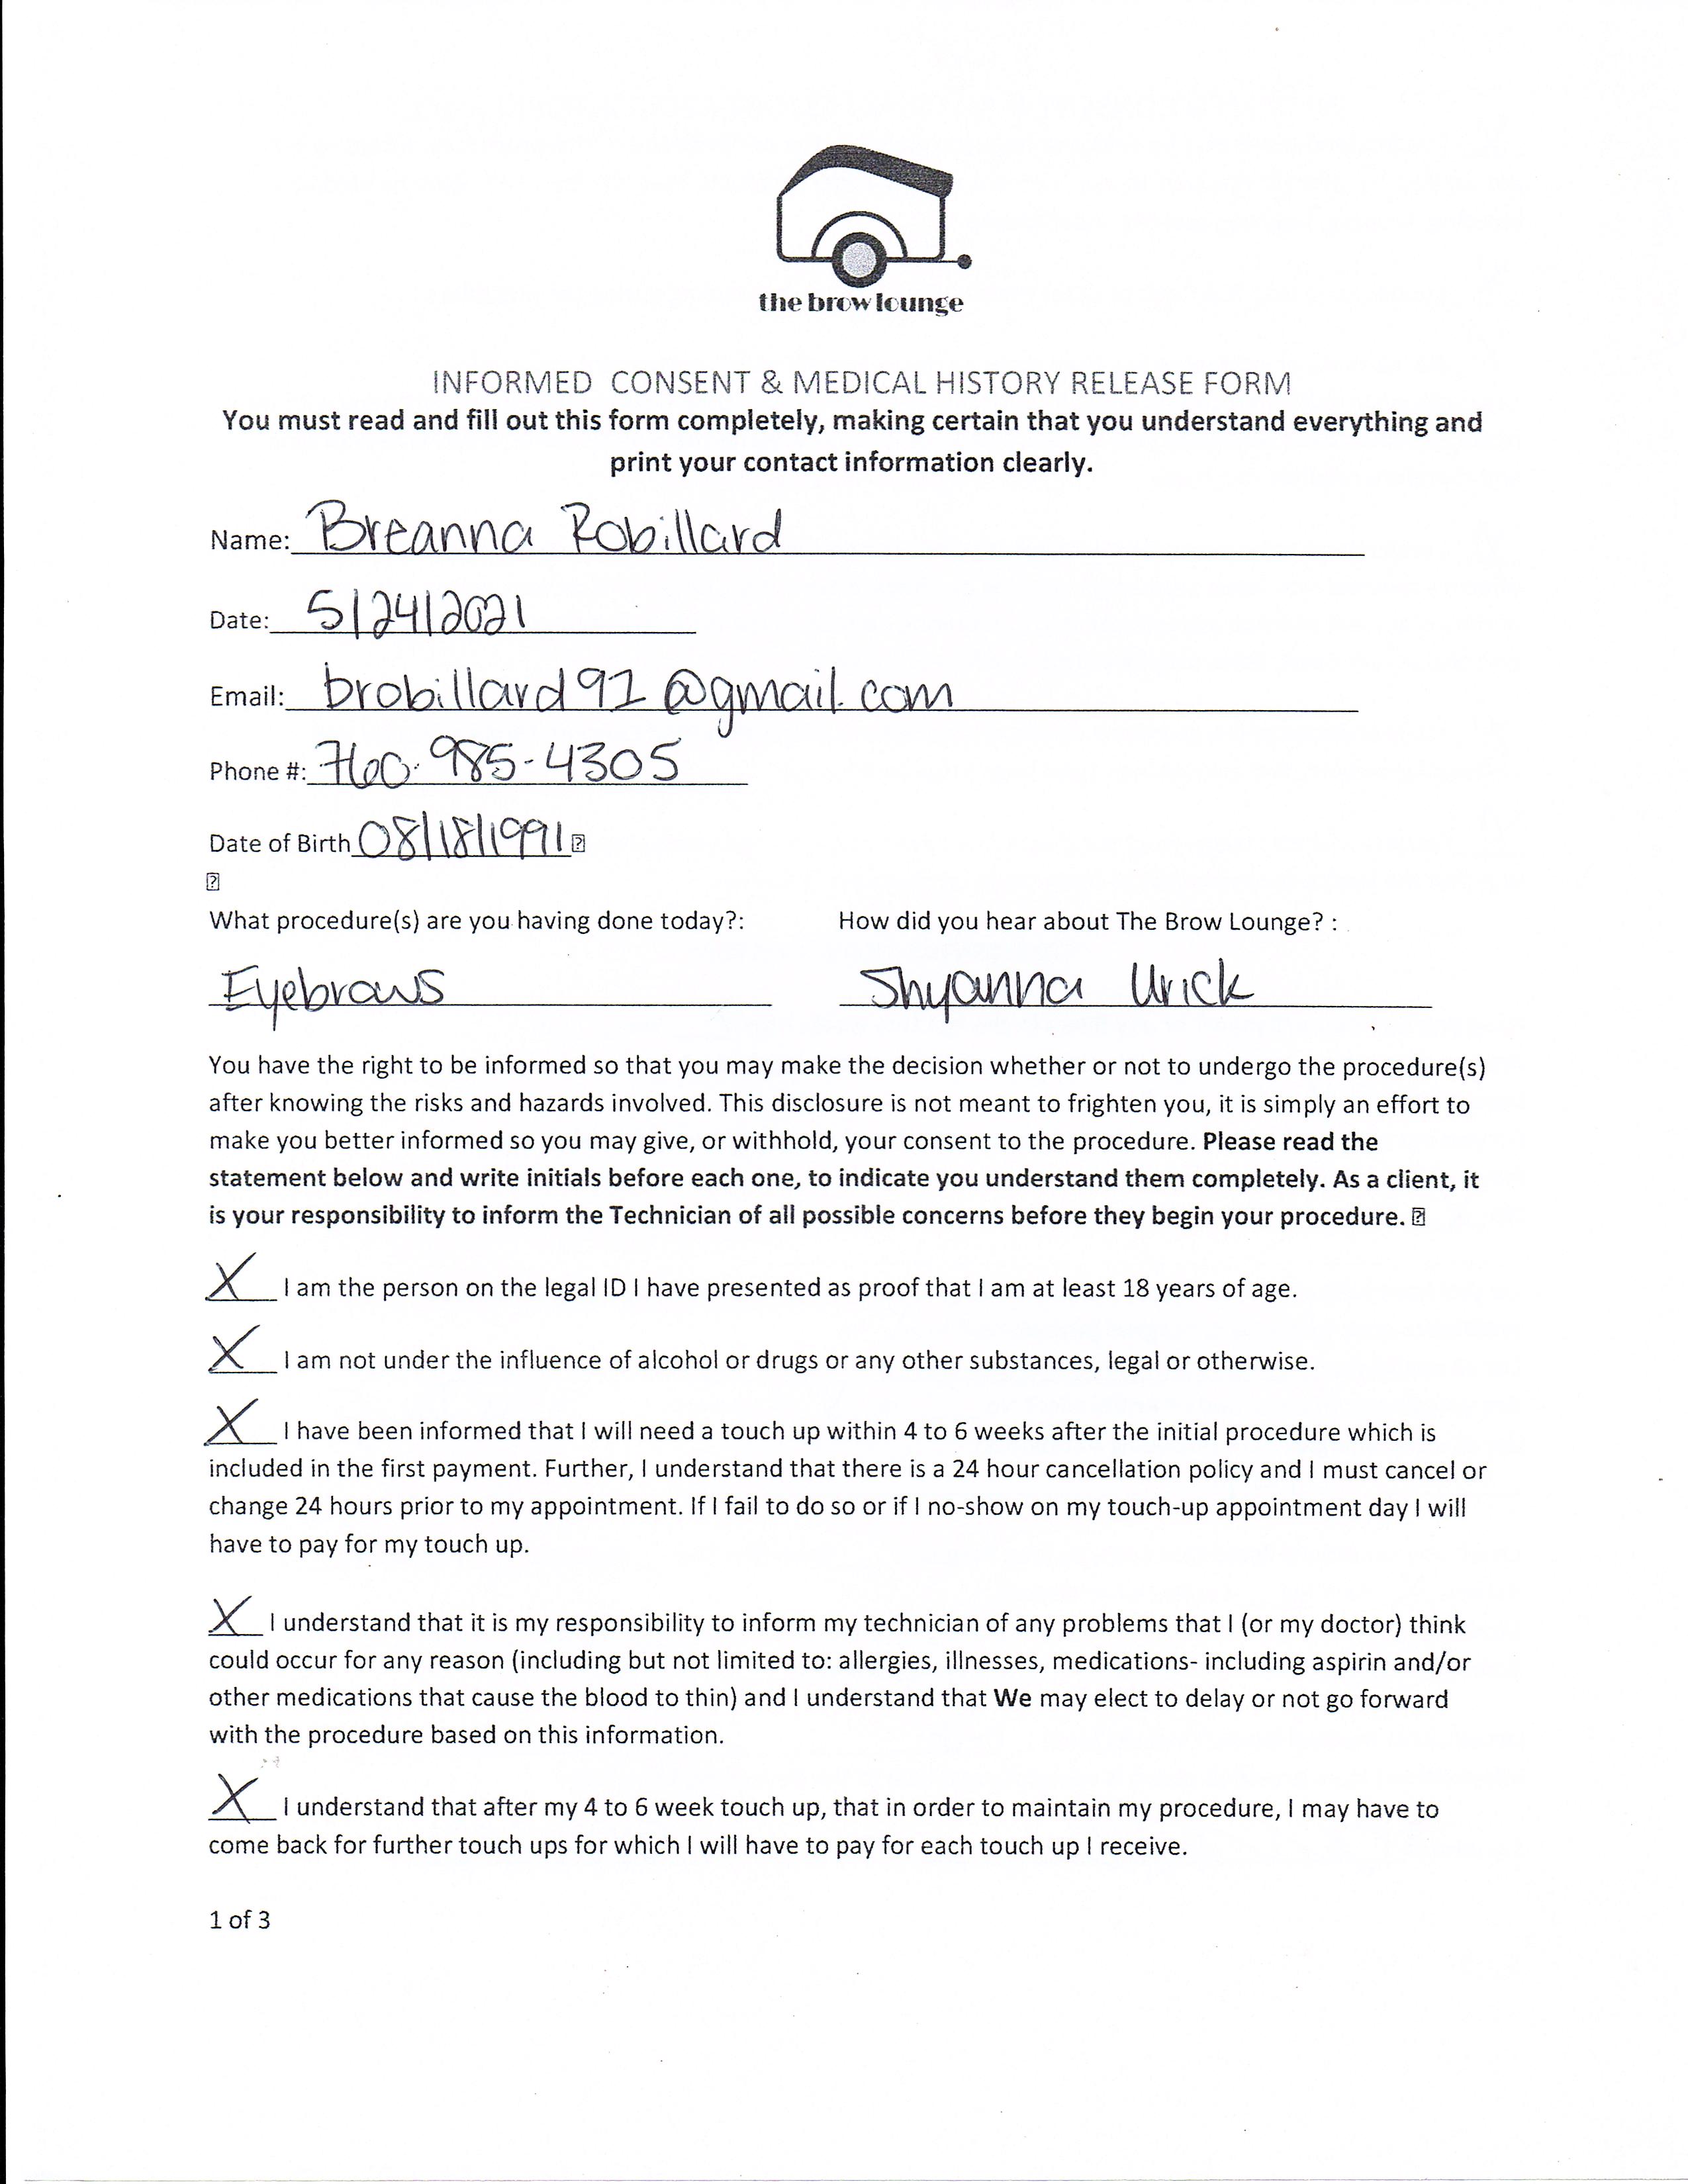 the brow lounge
INFORMED CONSENT & MEDICAL HISTORY RELEASE FORM
You must read and fill out this form completely, making certain that you understand everything and
print your contact information clearly.
Name: Breanna Robillard
Date: 5/24/2021
Email: brobillard91@gmail.com
Phone #: 760-985-4305
Date of Birth 08/18/1991
What procedure(s) are you having done today?: How did you hear about The Brow Lounge? :
Eyebrows Shyanna Urick
You have the right to be informed so that you may make the decision whether or not to undergo the procedure(s)
after knowing the risks and hazards involved. This disclosure is not meant to frighten you, it is simply an effort to
make you better informed so you may give, or withhold, your consent to the procedure. Please read the
statement below and write initials before each one, to indicate you understand them completely. As a client, it
is your responsibility to inform the Technician of all possible concerns before they begin your procedure.
X I am the person on the legal ID I have presented as proof that I am at least 18 years of age.
X I am not under the influence of alcohol or drugs or any other substances, legal or otherwise.
X I have been informed that I will need a touch up within 4 to 6 weeks after the initial procedure which is
included in the first payment. Further, I understand that there is a 24 hour cancellation policy and I must cancel or
change 24 hours prior to my appointment. If I fail to do so or if I no-show on my touch-up appointment day I will
have to pay for my touch up.
X I understand that it is my responsibility to inform my technician of any problems that I (or my doctor) think
could occur for any reason (including but not limited to: allergies, illnesses, medications- including aspirin and/or
other medications that cause the blood to thin) and I understand that We may elect to delay or not go forward
with the procedure based on this information.
X I understand that after my 4 to 6 week touch up, that in order to maintain my procedure, I may have to
come back for further touch ups for which I will have to pay for each touch up I receive.
1 of 3